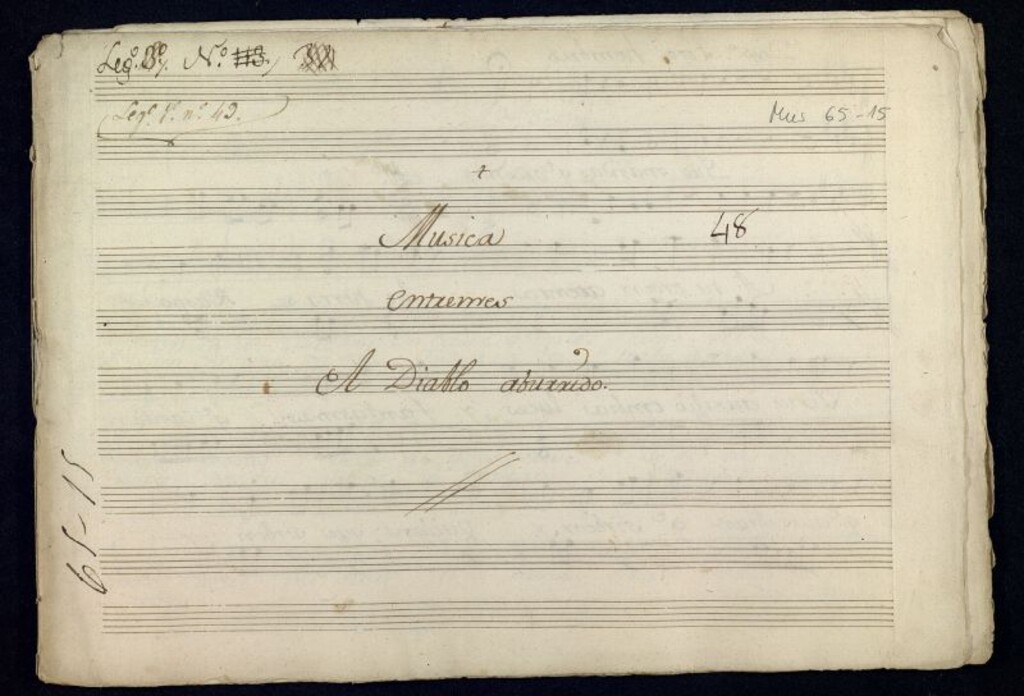 Leg.º 3.º N.º
Leg.º 1.º n.º 49.
Mus 65-15
+
Musica 48
entremes
El Diablo aburrido.
65-15